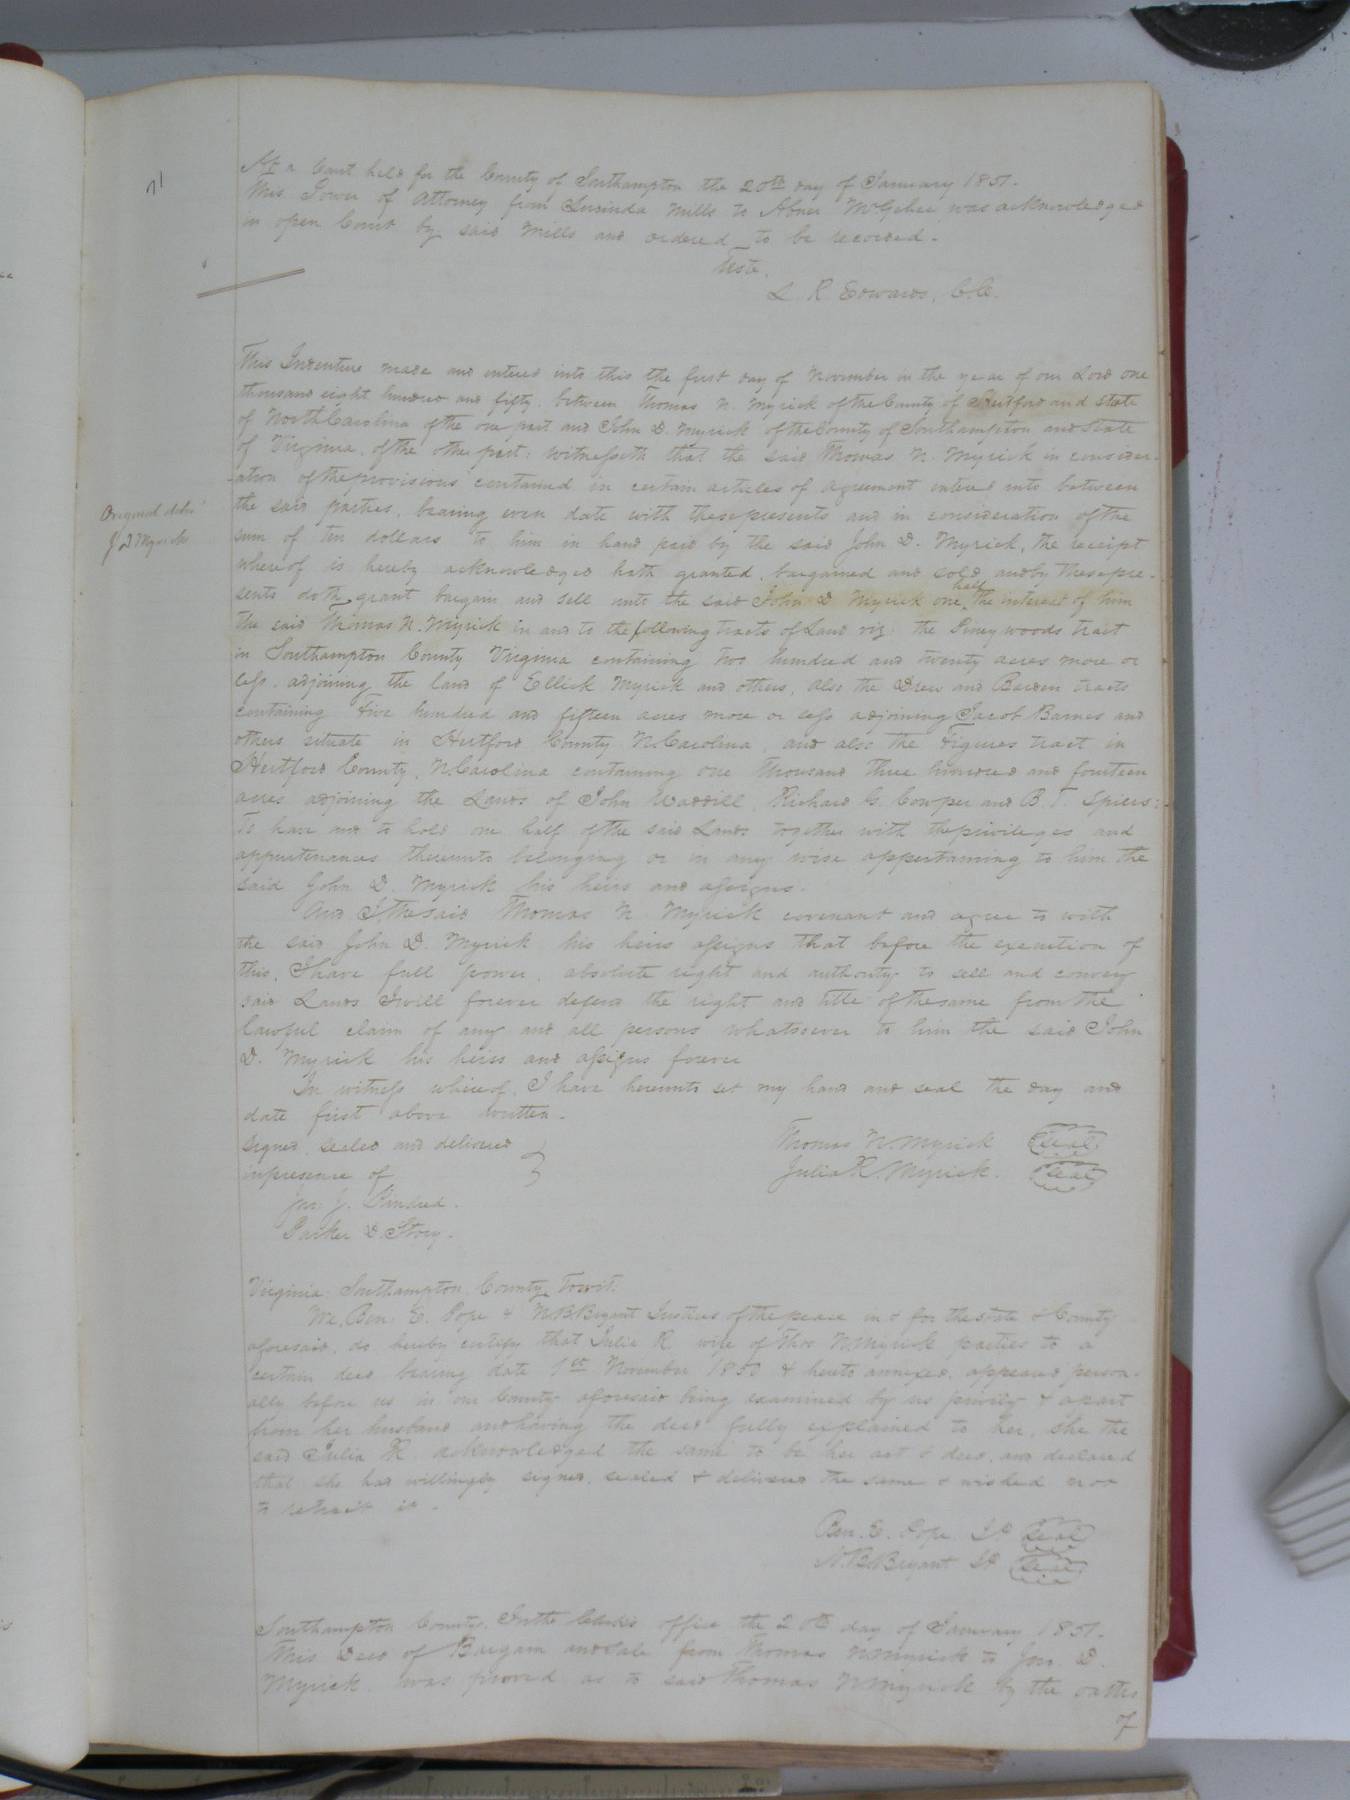 71
At a Court held for the County of Southampton the 20th day of January 1851.
This Power of Attorney from Lucinda Mills to Abner McGehee was acknowledged
in open Court by said Mills and ordered to be recorded.
Teste,
L. R. Edwards, C.C.
This Indenture made and entered into this the first day of November in the year of our Lord one
thousand eight hundred and fifty. between Thomas N. Myrick of the County of Hertford and State
of North Carolina of the one part and John D. Myrick of the County of Southampton and State
of Virginia, of the other part: witnesseth that the said Thomas N. Myrick in consider-
ation of the provisions contained in certain articles of agreement entered into between
Original deliv
the said parties, bearing even date with these presents and in consideration of the
J D Myrick
sum of ten dollars to him in hand paid by the said John D. Myrick, the receipt
whereof is hereby acknowledged hath granted, bargained and sold and by these pre-
sents doth grant bargain and sell unto the said John D Myrick one half the interest of him
the said Thomas N. Myrick in and to the following tracts of Land viz: the Piney woods tract
in Southampton County Virginia containing two hundred and twenty acres more or
less. adjoining the land of Ellick Myrick and others, also the Drew and Barden tracts
containing Five hundred and fifteen acres more or less adjoining Jacob Barnes and
others situate in Hertford County N. Carolina, and also the Figures tract in
Hertford County, N. Carolina containing one thousand three hundred and fourteen
acres adjoining the Lands of John Waddill, Richard G. Cowper and B. T. Spiers:
To have and to hold one half of the said Lands together with the privileges and
appurtenances thereunto belonging or in any wise appertaining to him the
said John D. Myrick his heirs and assigns.
And I the said Thomas N Myrick covenant and agree to with
the said John D. Myrick his heirs assigns that before the execution of
this, I have full power, absolute right and authority to sell and convey
said Lands I will forever defend the right and title of the same from the
lawful claim of any and all persons whatsoever to him the said John
D. Myrick his heirs and assigns forever
In witness whereof, I have hereunto set my hand and seal the day and
date first above written.
Signed, sealed and delivered
Thomas N. Myrick Seal
in presence of
Julia R. Myrick. Seal
Jno. J. Kindred.
Parker D. Story.
Virginia Southampton County, Towit:
We, Ben. E. Pope & N B Bryant Justices of the peace in & for the state & County
aforesaid, do hereby certify that Julia R wife of Thos N Myrick parties to a
certain deed bearing date 1st November 1850 & hereto annexed, appeared person-
ally before us in our County aforesaid being examined by us privily & apart
from her husband and having the deed fully explained to her, she the
said Julia R. acknowledged the same to be her act & deed, and declared
that she had willingly signed, sealed & delivered the same & wished not
to retract it.
Ben. E. Pope J.P. Seal
N. B. Bryant JP Seal
Southampton County. In the Clerk's office the 20th day of January 1851.
This Deed of Bargain and Sale from Thomas N Myrick to Jno. D.
Myrick. was proved as to said Thomas N Myrick by the oaths
of